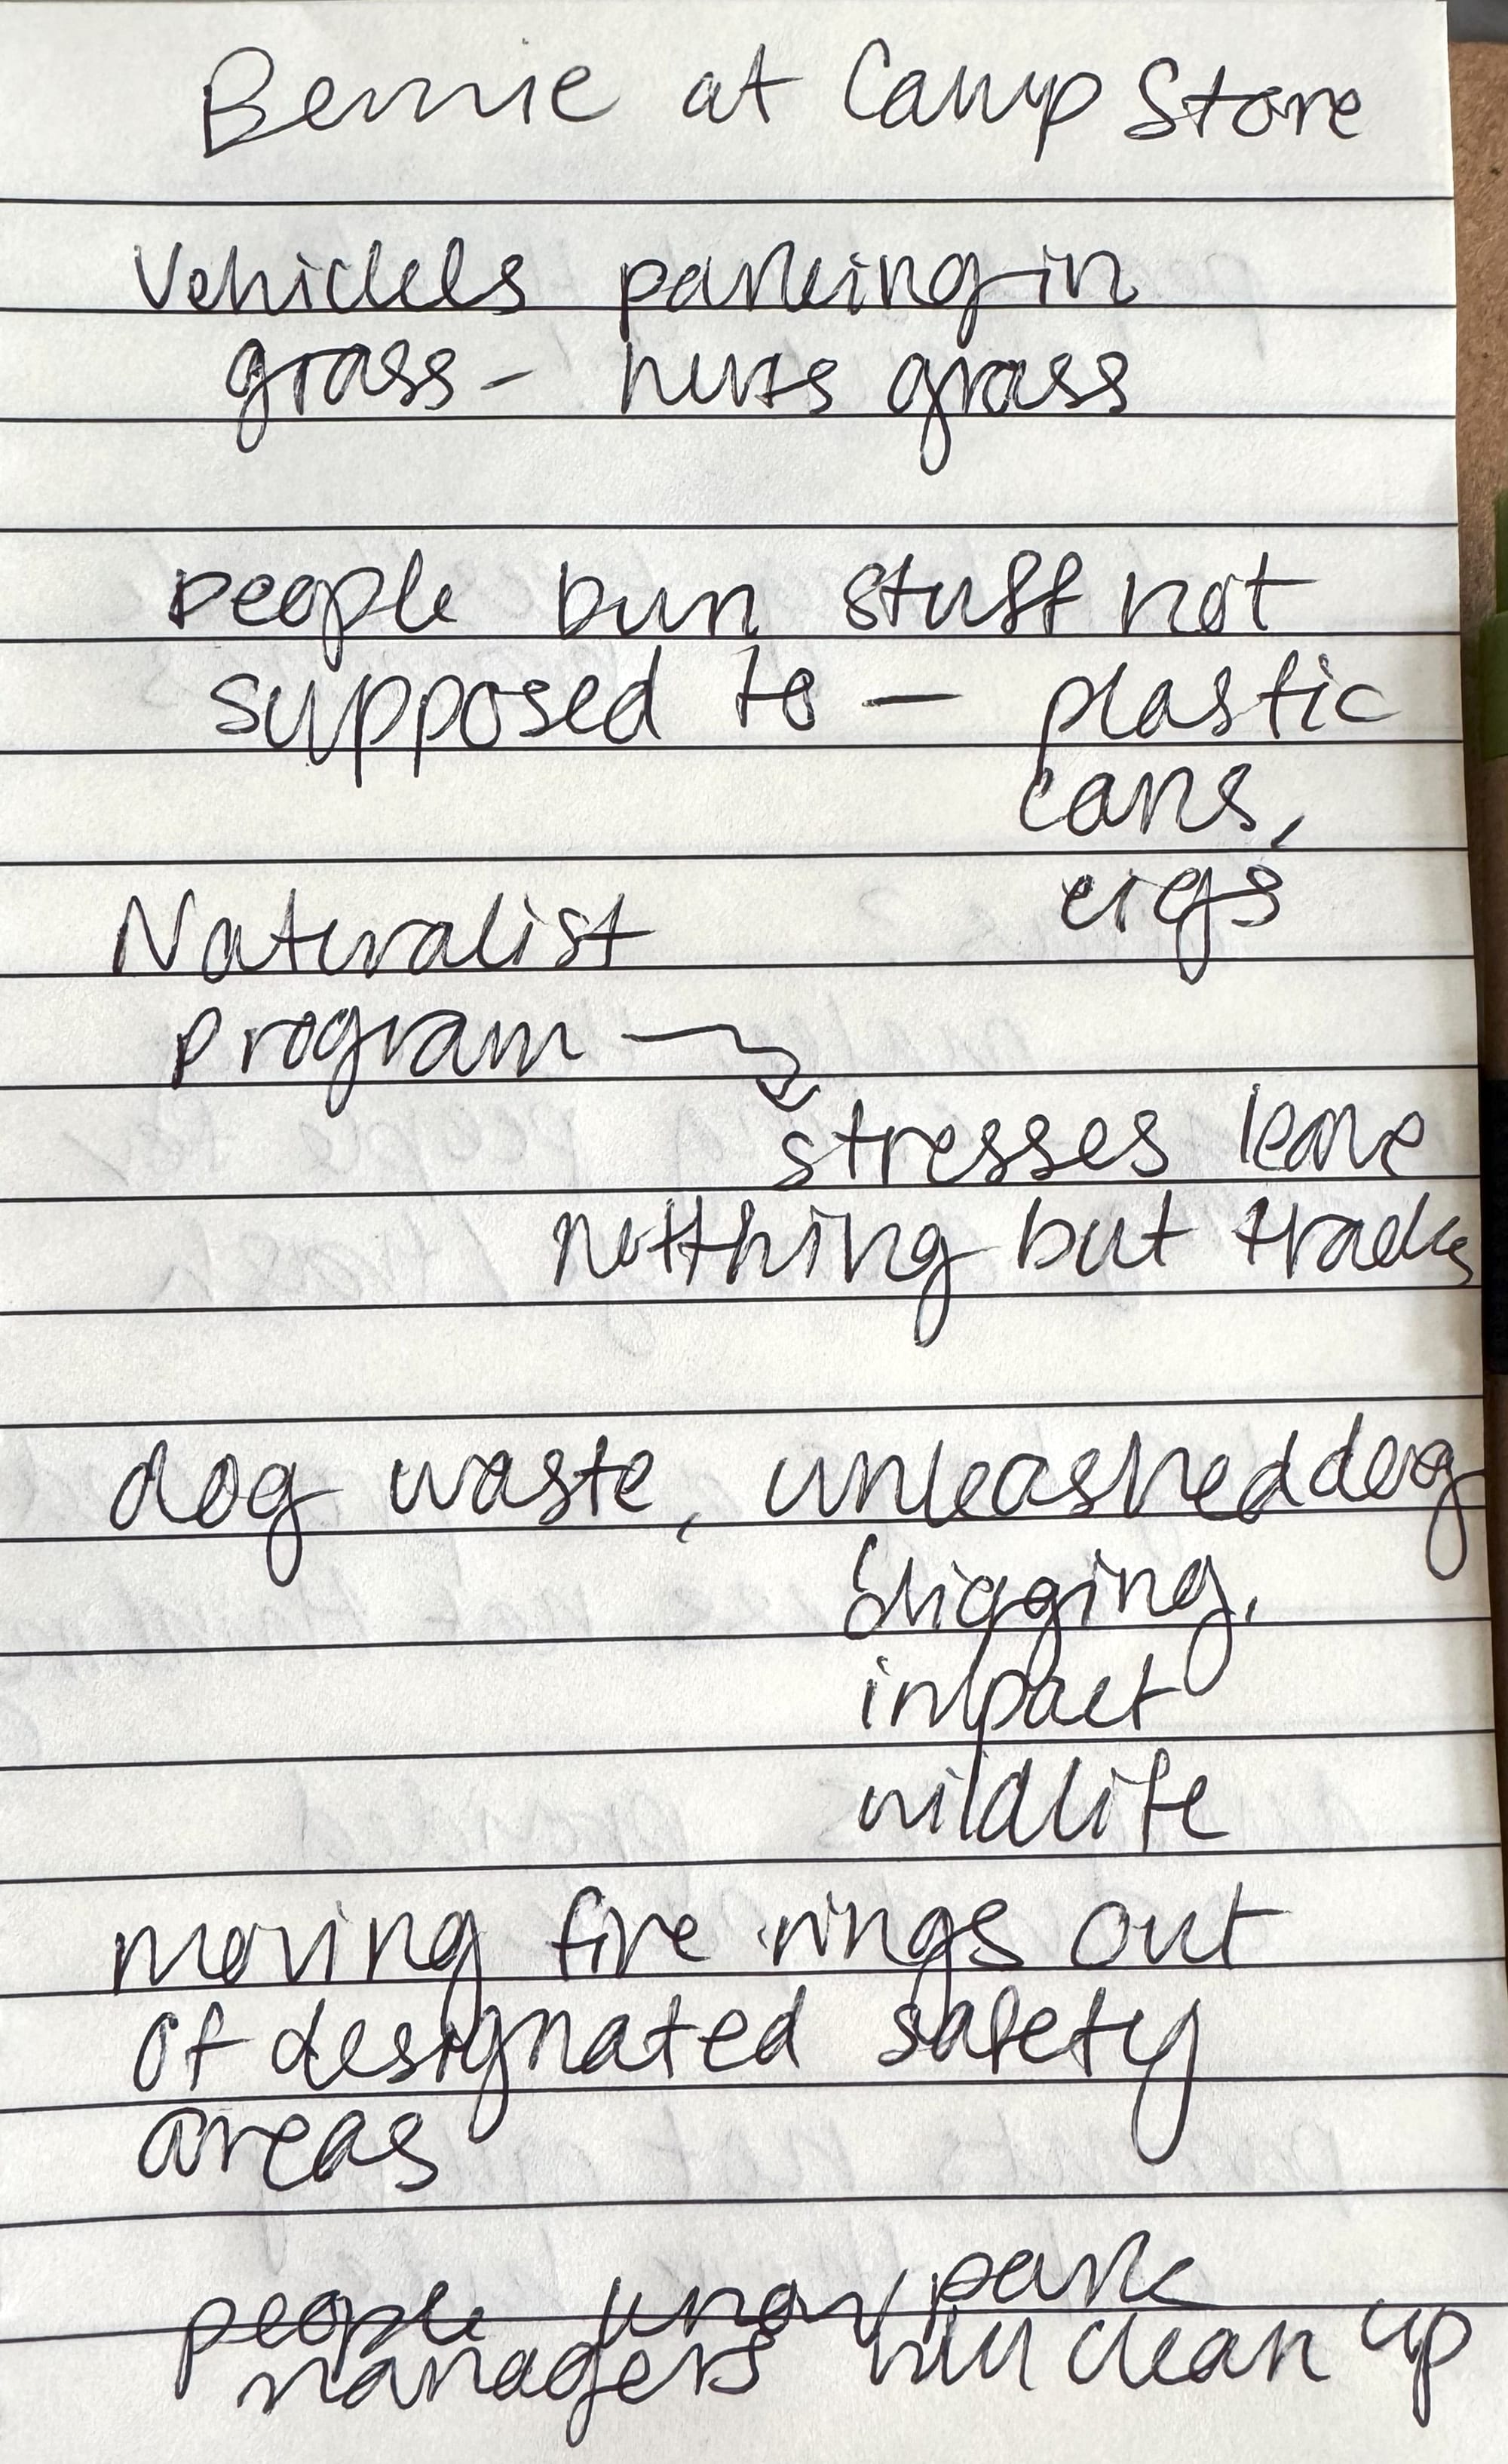 Bernie at Camp Store
Vehicles parking in
grass - hurts grass
people burn stuff not
supposed to — plastic
cans,
cigs
Naturalist
program →
stresses leave
notthing but tracks
dog waste, unleashed dog
digging,
impact
wildlife
moving fire rings out
of designated safety
areas
people know park
managers will clean up